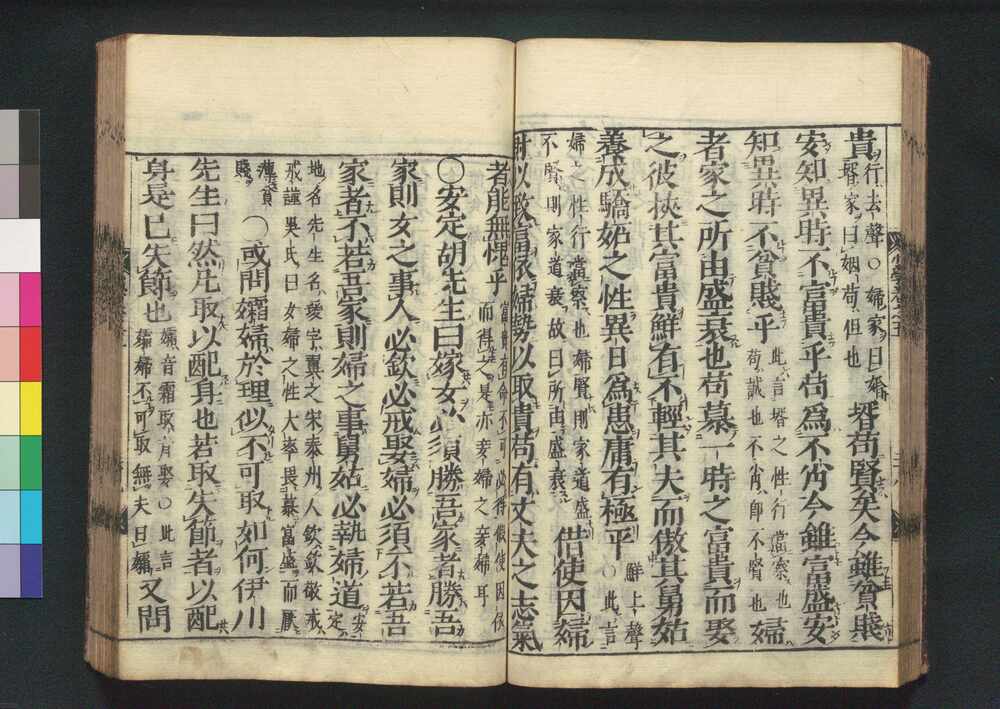 貴行去聲○婦家曰婚
壻家曰姻苟但也壻苟賢矣今雖貧賤
安知異時不富貴乎苟爲不肖今雖富盛安
知異時不貧賤乎此言壻之性行當察也
苟誠也不肖即不賢也婦
者家之所由盛衰也苟慕一時之富貴而娶
之彼挾其富貴鮮有不輕其夫而傲其舅姑
養成驕妬之性異日爲患庸有極乎鮮上聲
○此言
婦之性行當察也婦賢則家道盛
不賢則家道衰故曰所由盛衰借使因婦
財以致富依婦勢以取貴苟有丈夫之志氣
者能無愧乎富貴有命不可必得假使因依
而得之是亦妾婦之妾婦耳
○安定胡先生曰嫁女必須勝吾家者勝吾
家則女之事人必欽必戒娶婦必須不若吾
家者不若吾家則婦之事舅姑必執婦道安
定
地名先生名瑗字翼之宋泰州人欽敬戒
謹吳氏曰女婦之性大率畏慕富盛而厭
薄貧
賤○或問孀婦於理似不可取如何伊川
先生曰然凡取以配身也若取失節者以配
身是已失節也孀音霜取音娶○此言
孀婦不可取無夫曰孀又問